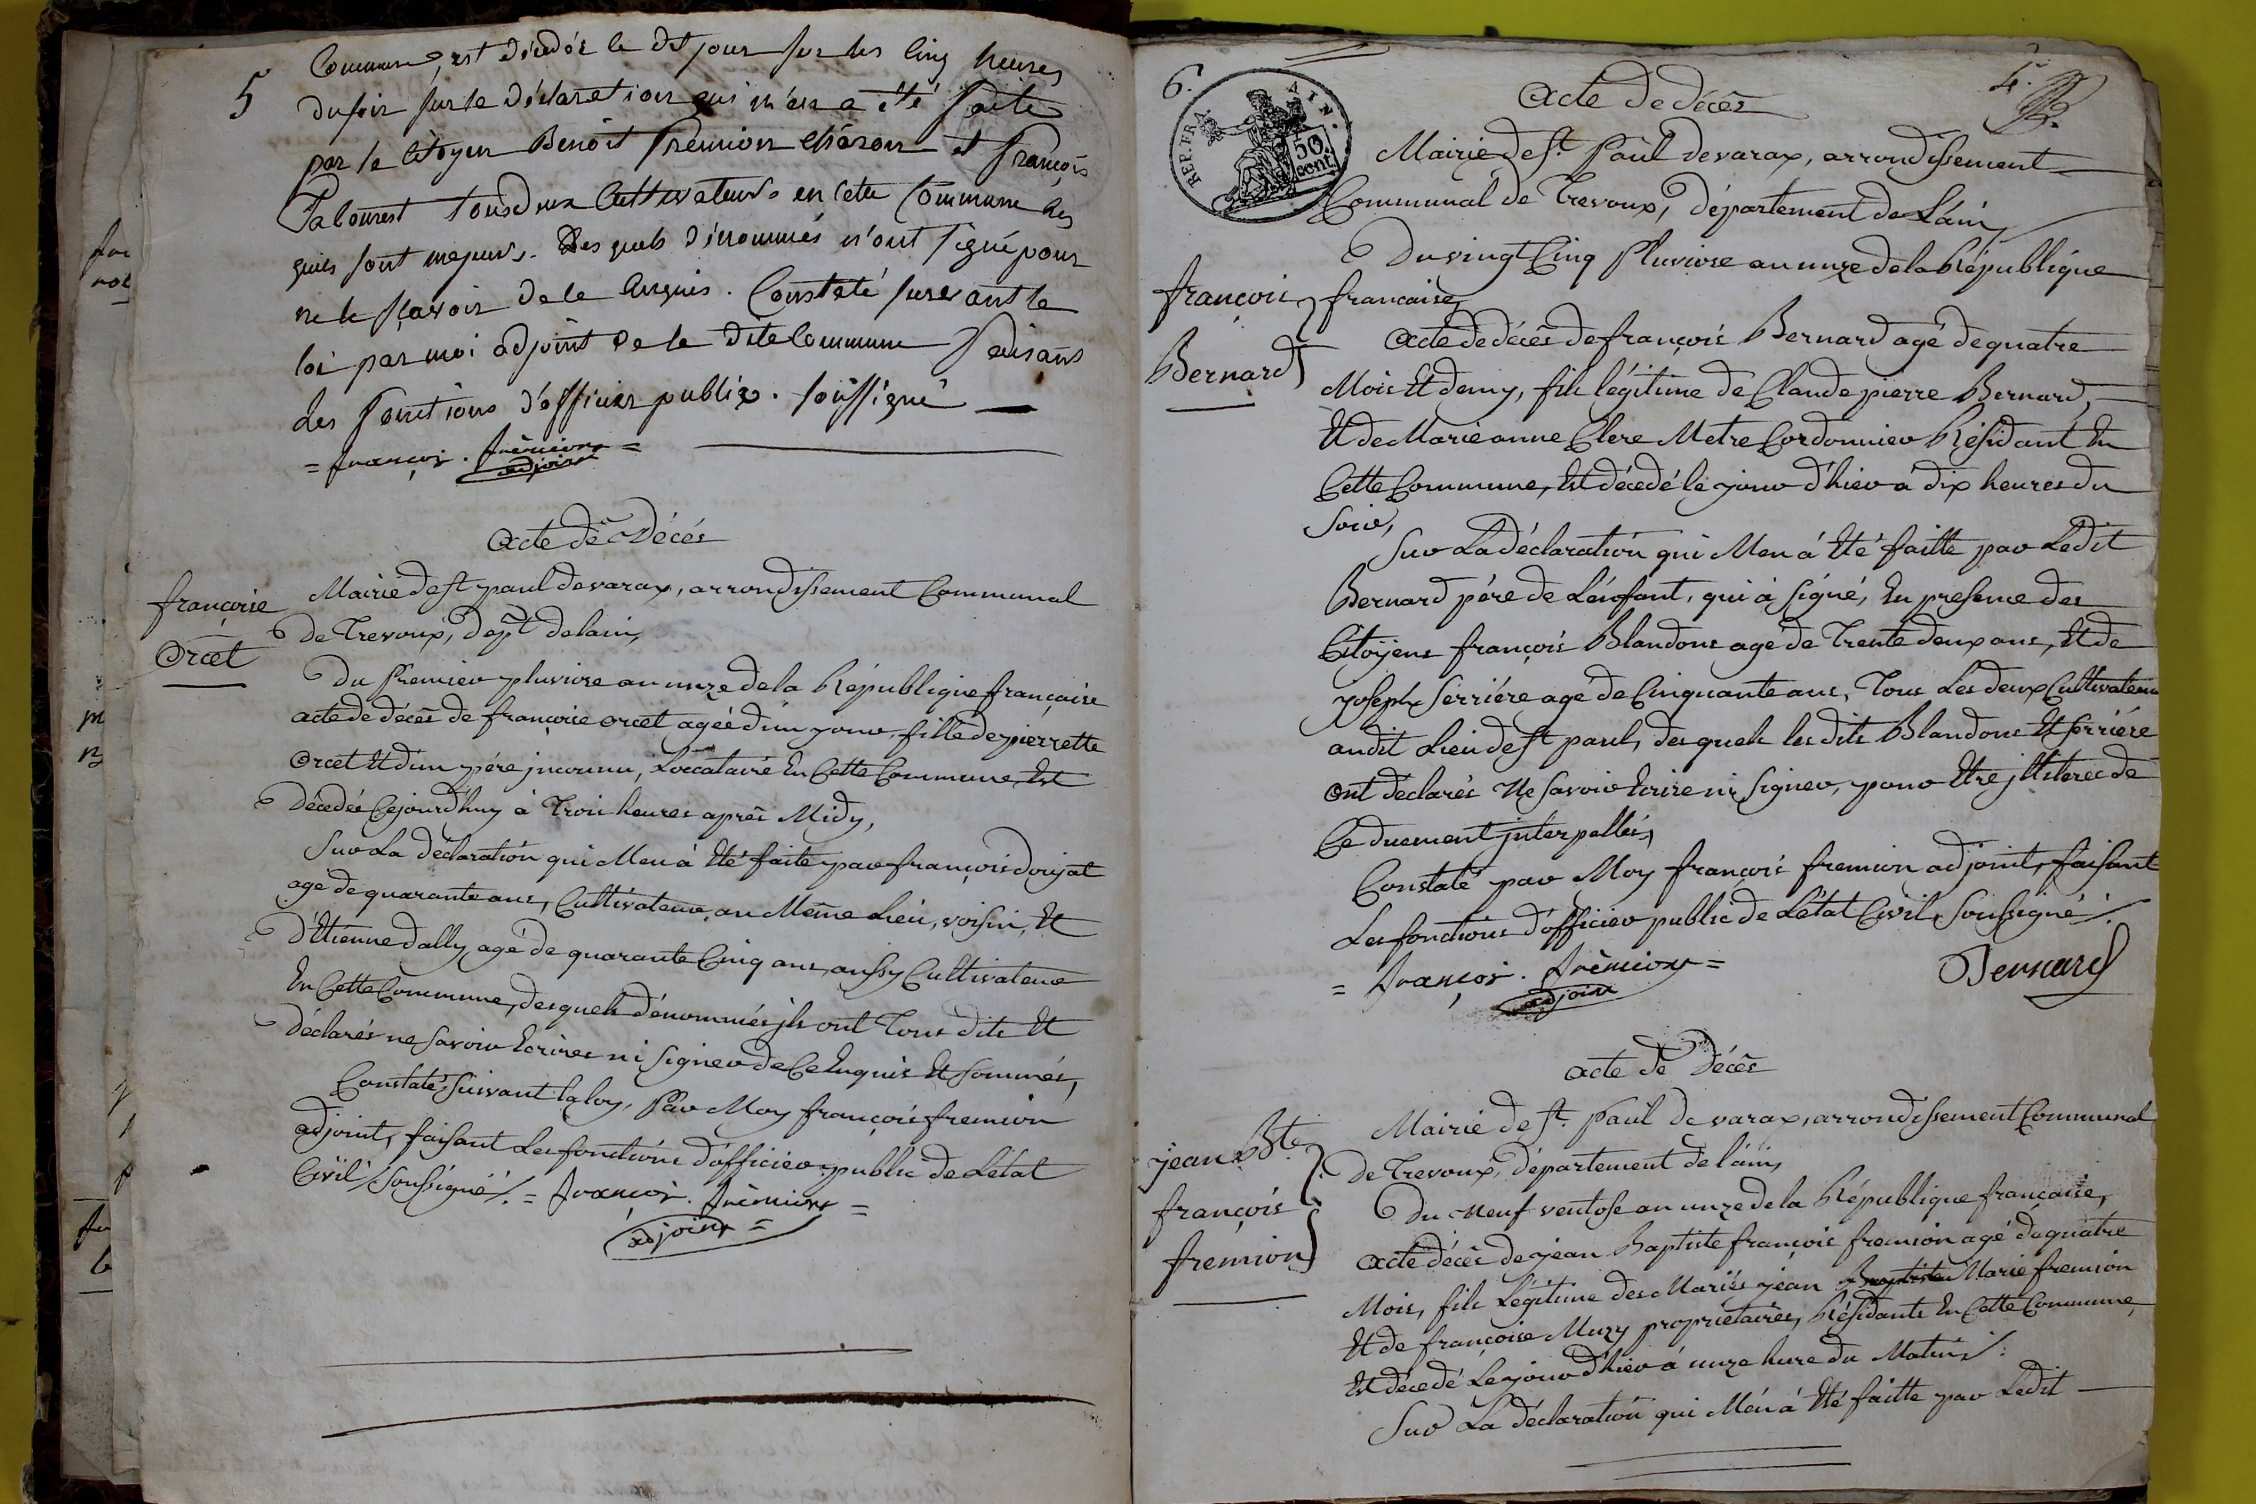 5
Commune, est décédé le dit jour sur les cinq heures
du soir sur la déclaration qui m'en a été faite
par le citoyen Benoît fremion et françois
tous deux cultivateurs en cette Commune les
quels sont majeurs. Des quels dénommés n'ont signé pour
ne le sçavoir de ce enquis. Constaté suivant la
loi par moi adjoint de la dite Commune faisans
des fonctions d'officier public. soussigné
= françois. frèmion =
adjoint
Acte de Décés
françoise
Orcet
Mairie de st paul de varax, arrondissement Communal
de Trevoux, dept de lain,
Du Premier pluviose an unze de la République française
acte de décès de françoise orcet agée d'un jour, fille de pierrette
Orcet Et d'un pére jnconnu, Loccataire En Cette Commune, Est
décédée Cejourd'huy à Trois heures après Midy,
Sur La déclaration qui Men à Eté faite par françois doujat
agé de quarante ans, Cultivateur, au Même Lieu, voisin, Et
d'Etienne dally agé de quarante Cinq ans, aussy Cultivateur
En Cette Commune, desquels dénommés jls ont Tous dits Et
déclarés ne savoir Ecrires ni signer de Ce Enquis Et sommés,
Constaté suivant la loy, Par Moy françois fremion
adjoint, faisant Les fonctions d'officier public de L'état
Civil soussigné ./. = françois. frèmion =
adjoint =
6.
4.
REP. FRA. AIN.
50 cent.
Acte de décès
Mairie de st. Paul de varax, arrondissement
Communal de Trevoux, département de L'ain,
françois
Bernard
Du vingt Cinq Pluviose an unze de la République
française,
Acte de décès de françois Bernard agé de quatre
Mois Et demy, fils légitime de Claude pierre Bernard,
Et de Marie anne Clerc Metre Cordonnier Résidant En
Cette Commune, Est décédé le jour d'hier à dix heures du
soir,
Sur La déclaration qui Men á Eté faitte par Ledit
Bernard pére de L'énfant, qui à signé, En presence des
Citoyens françois Blandons agé de Trente deux ans, Et de
joseph serriére agé de Cinquante ans, Tous Les deux Cultivateurs
audit Lieu de st paul, desquels les dits Blandons Et serriére
ont déclarés Ne savoir Ecrire ni signer, pour Etre jlliterés de
Ce duement jnterpellés,
Constaté par Moy françois fremion adjoint, faisant
Les fonctions d'officier public de L'état Civil, soussigné ./.
= françois. frèmion =
adjoint
Bernard
acte de Décès
jean Bte
françois
fremion
Mairie de st. Paul de varax, arrondissement Communal
de Trevoux, département de l'ain,
Du Neuf ventose an unze de la République française,
Acte décès de jean Baptiste françois fremion agé de quatre
Mois, fils Légitime des Mariés jean Baptiste Marie fremion
Et de françoise Muzy propriétaires, Résidants En Cette Commune,
Est décédé Le jour d'hier á unze hure du Matin ./.
Sur La déclaration qui M'én á Eté faitte par Ledit